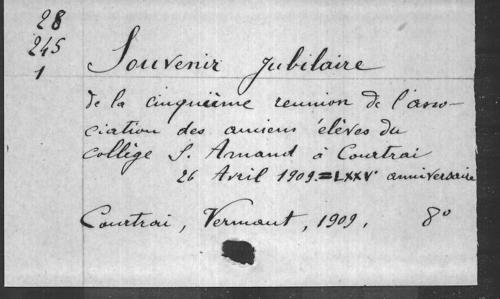 28
245
1
Souvenir jubilaire
de la cinquième reunion de l'asso-
ciation des anciens élèves du
collège S. Amand à Courtrai
26 Avril 1909 = LXXVe anniversaire
Courtrai, Vermaut, 1909. 8o